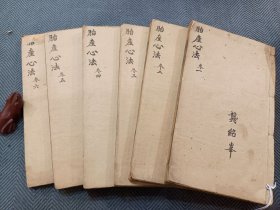 胎產心法 卷一
龔紹峯
胎產心法 卷二
胎產心法 卷三
胎產心法 卷四
胎產心法 卷五
胎產心法 卷六